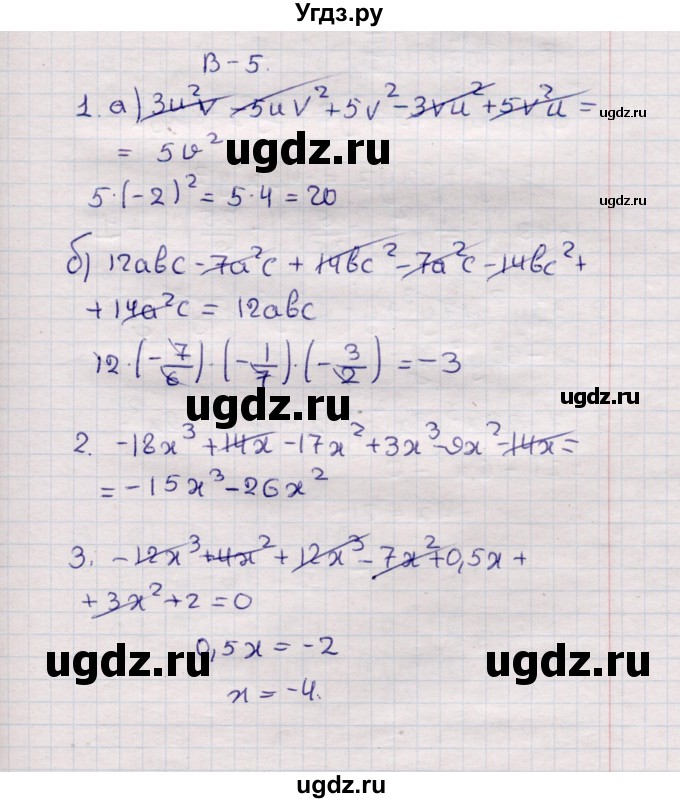 Угдз.ру
В-5.
1. а) 3u²v - 5uv² + 5v² - 3vu² + 5v²u =
ugdz.ru
= 5v²
ugdz.ru
5·(-2)² = 5·4 = 20
ugdz.ru
б) 12abc - 7a²c + 14bc² - 7a²c - 14bc² +
+ 14a²c = 12abc
ugdz.ru
12·(-7/6)·(-1/7)·(-3/2) = -3
ugdz.ru
2. -18x³ + 14x - 17x² + 3x³ - 9x² - 14x =
ugdz.ru
= -15x³ - 26x²
3. -12x³ + 4x² + 12x³ - 7x² + 0,5x +
+ 3x² + 2 = 0
0,5x = -2
ugdz.ru
ugdz.ru
x = -4.
ugdz.ru